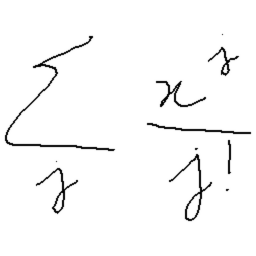 \sum_{j} \frac{x^{j}}{j!}